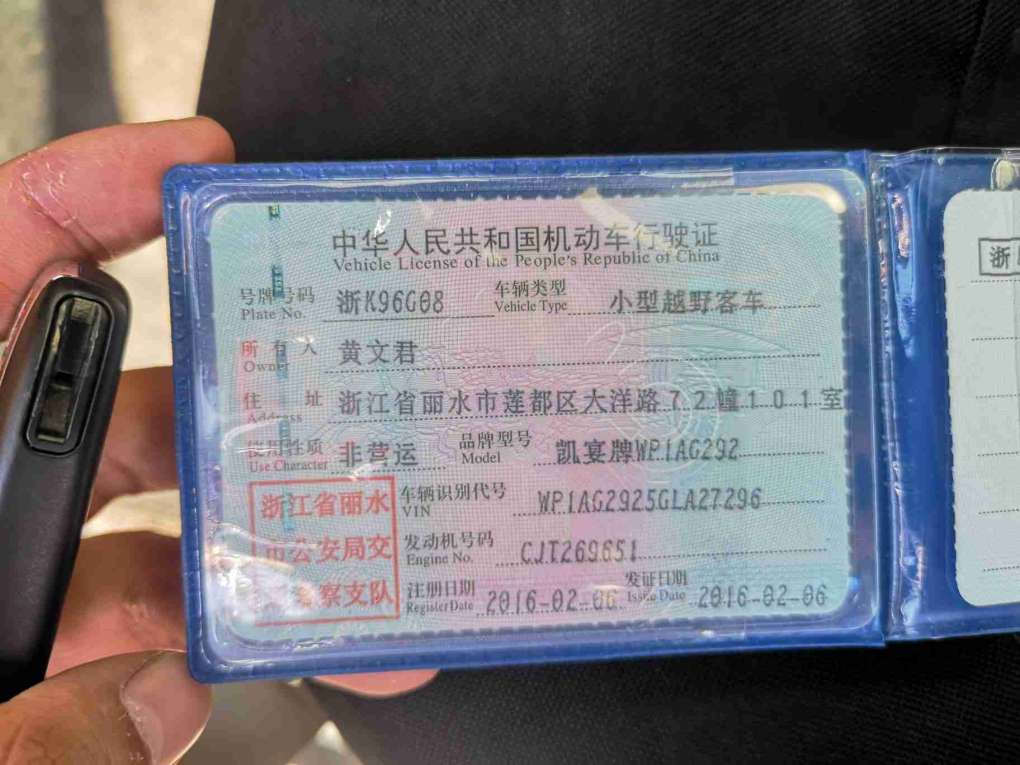 中华人民共和国机动车行驶证
Vehicle License of the People's Republic of China
号牌号码 浙K96G08 车辆类型 小型越野客车
Plate No. Vehicle Type
所有人 黄文君
Owner
住址 浙江省丽水市莲都区大洋路72幢101室
Address
使用性质 非营运 品牌型号 凯宴牌WP1AG292
Use Character Model
浙江省丽水 车辆识别代号 WP1AG2925GLA27296
VIN
市公安局交 发动机号码 CJT269651
Engine No.
警察支队 注册日期 2016-02-06 发证日期 2016-02-06
Register Date Issue Date
浙